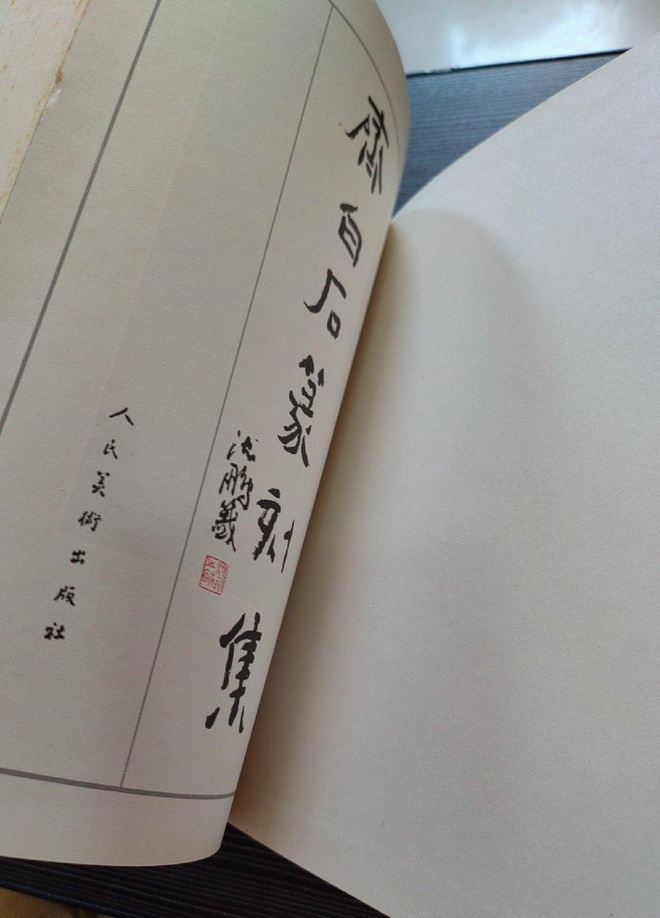 齐白石篆刻集
沈鵬籤
人民美術出版社